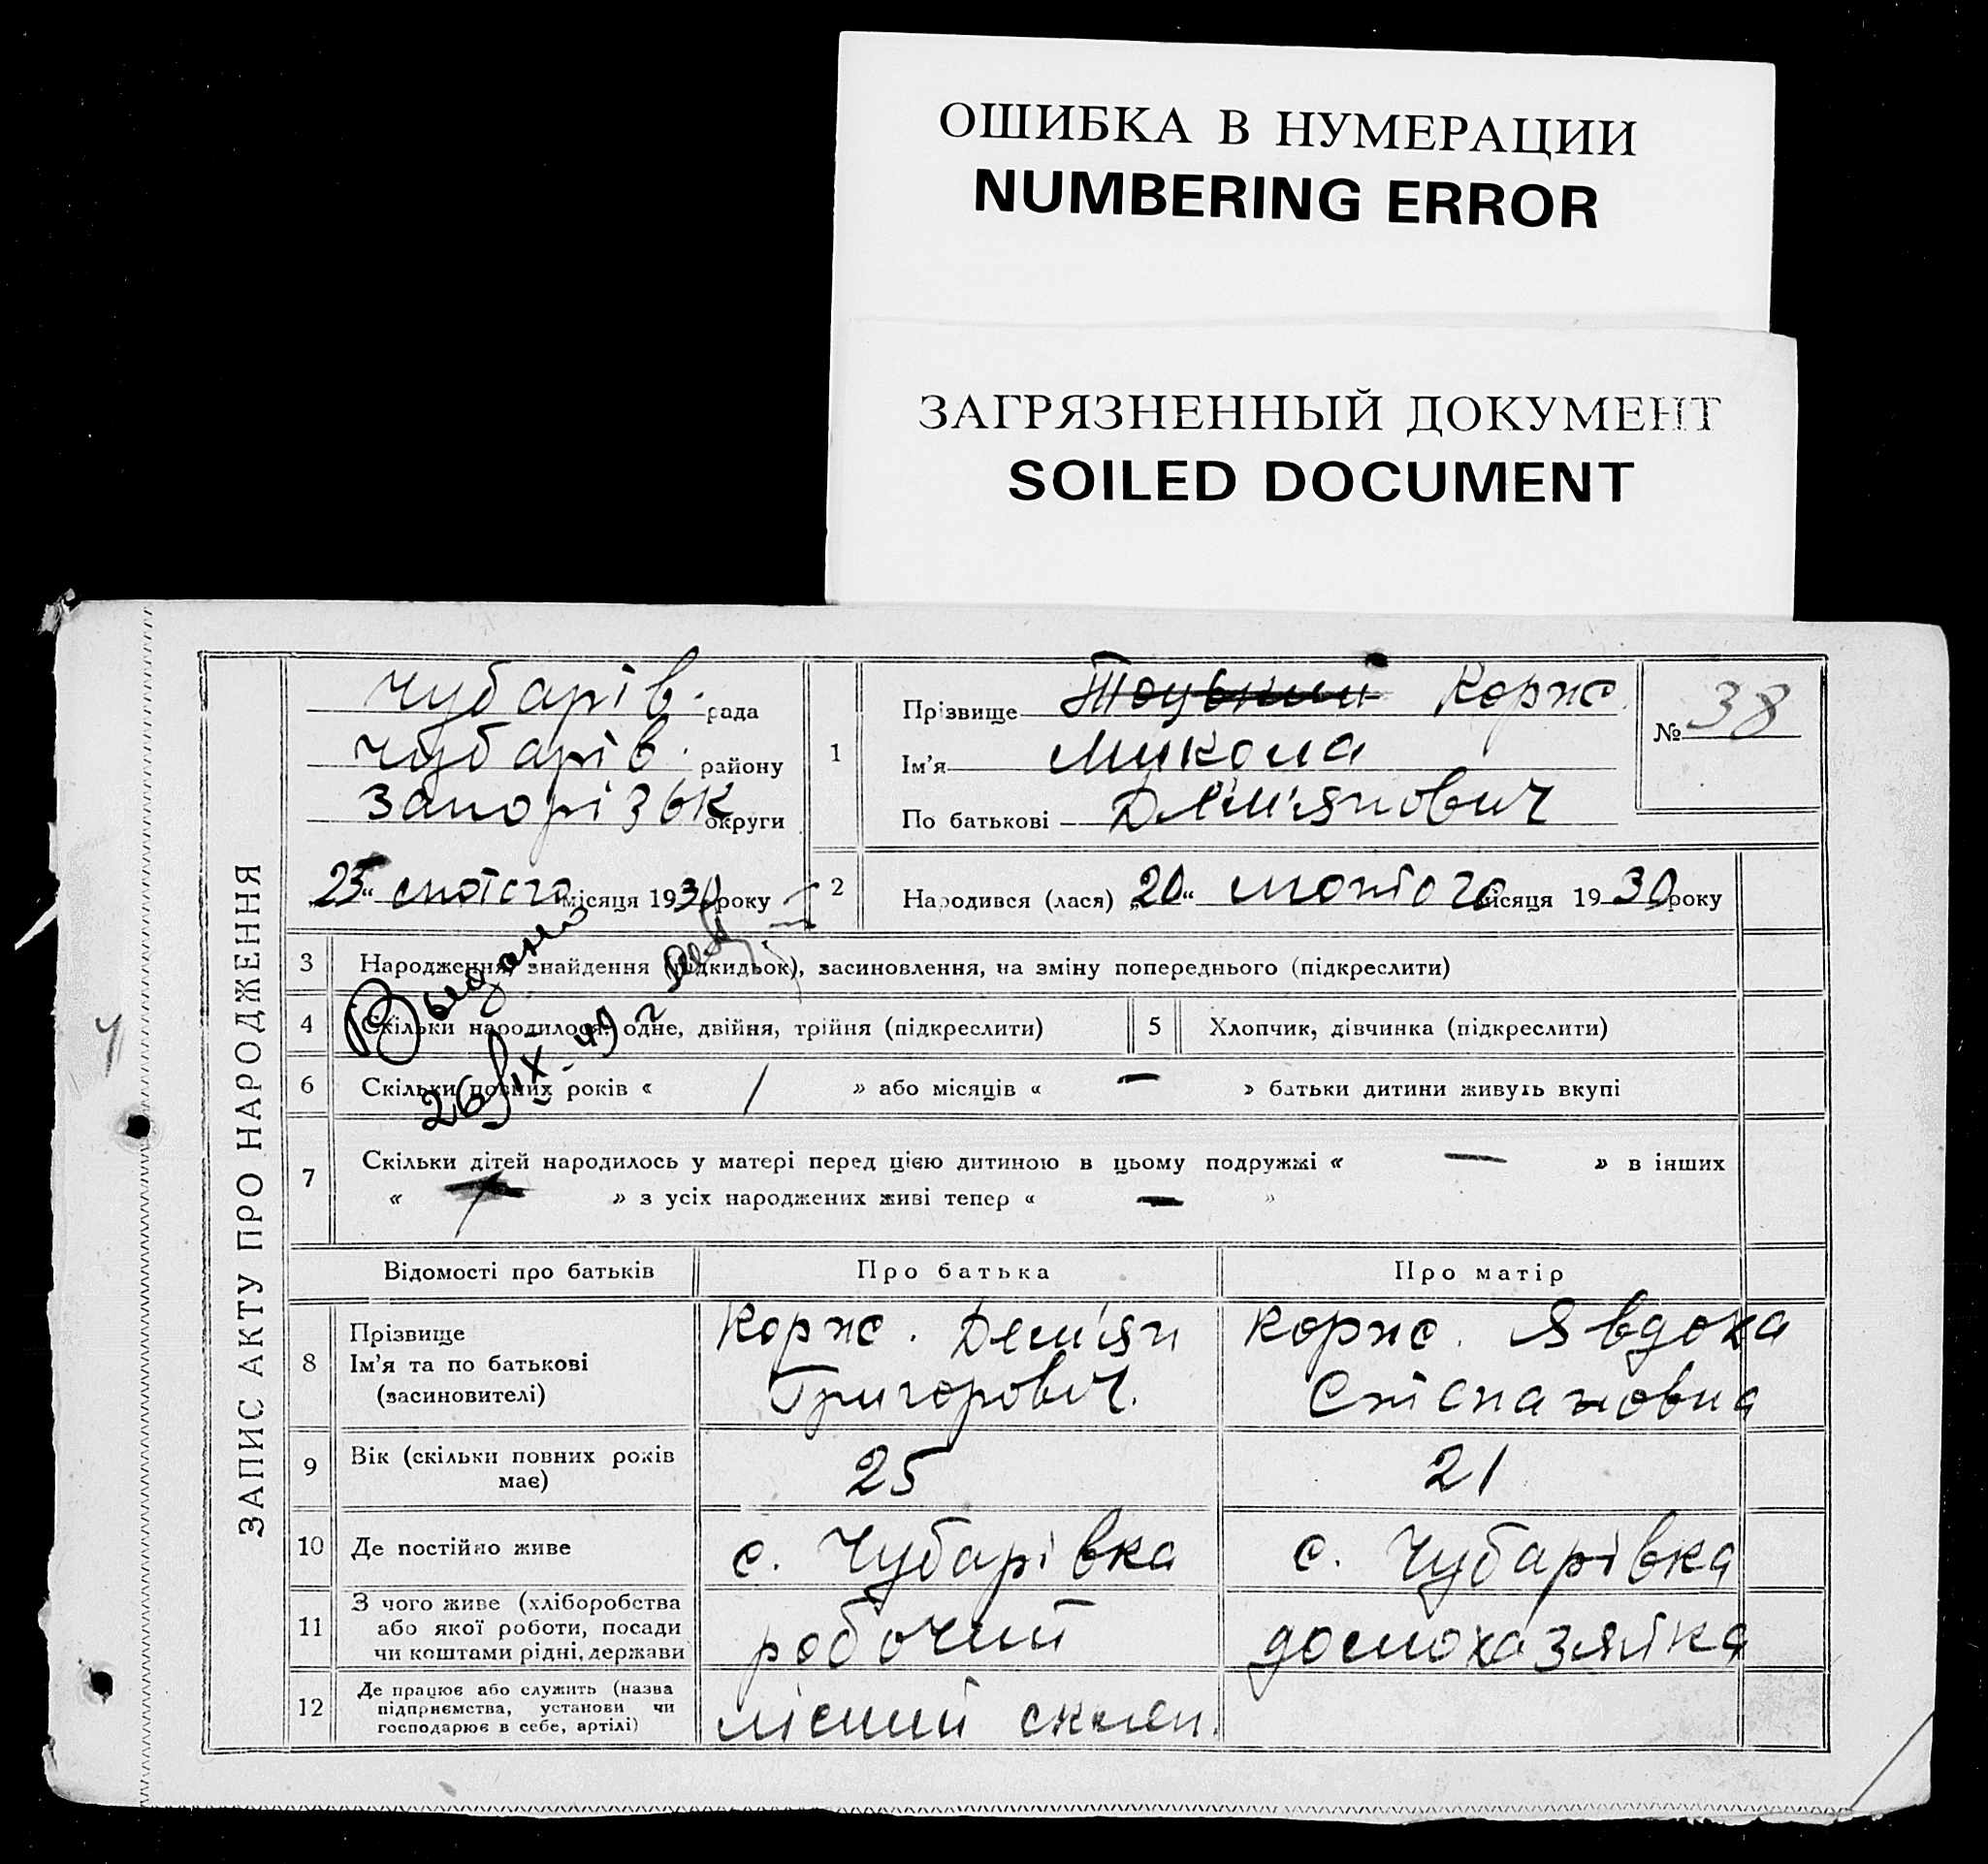 ОШИБКА В НУМЕРАЦИИ
NUMBERING ERROR
ЗАГРЯЗНЕННЫЙ ДОКУМЕНТ
SOILED DOCUMENT
ЗАПИС АКТУ ПРО НАРОДЖЕННЯ
Чубарів. рада
Чубарів. району
Запорізьк округи
„25“ лютого місяця 1930 року
1
Прізвище Корж
Ім'я Микола
По батькові Дем'янович
№ 38
2
Народився (лася) „20“ лютого місяця 1930 року
3 Народження, знайдення (підкидьок), засиновлення, на зміну попереднього (підкреслити)
4 Скільки народилося: одне, двійня, трійня (підкреслити)
5 Хлопчик, дівчинка (підкреслити)
6 Скільки повних років « 1 » або місяців « — » батьки дитини живуть вкупі
7 Скільки дітей народилось у матері перед цією дитиною в цьому подружжі « — » в інших
« » з усіх народжених живі тепер « — »
Выдано
26/IX-49 г
Відомості про батьків Про батька Про матір
8
Прізвище
Ім'я та по батькові
(засиновителі)
Корж. Дем'ян
Григорович.
Корж. Явдоха
Степановна
9 Вік (скільки повних років
має)
25
21
10 Де постійно живе
с. Чубарівка
с. Чубарівка
11
З чого живе (хліборобства
або якої роботи, посади
чи коштами рідні, держави
робочий
домохазяйка
12
Де працює або служить (назва
підприємства, установи чи
господарює в себе, артілі)
лісний склад.